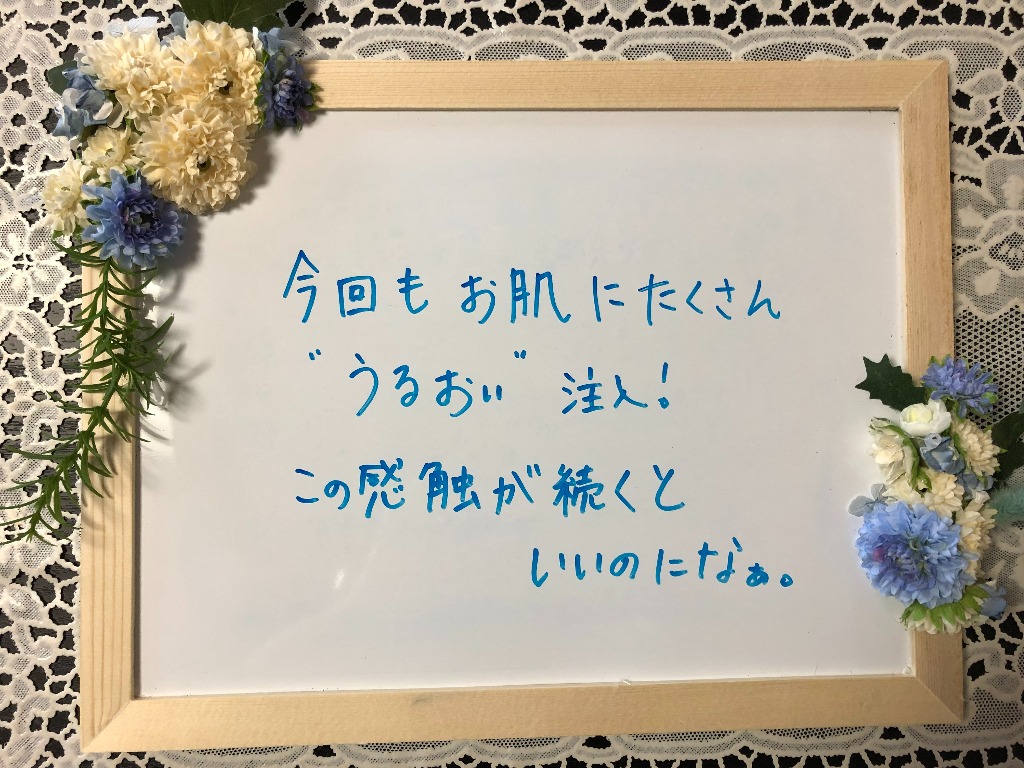 今回もお肌にたくさん
"うるおい"注入!
この感触が続くと
いいのになぁ。